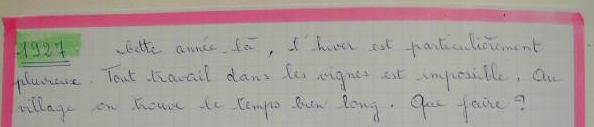 1927 Cette année-là, l'hiver est particulièrement
pluvieux. Tout travail dans les vignes est impossible. Au
village on trouve le temps bien long. Que faire ?